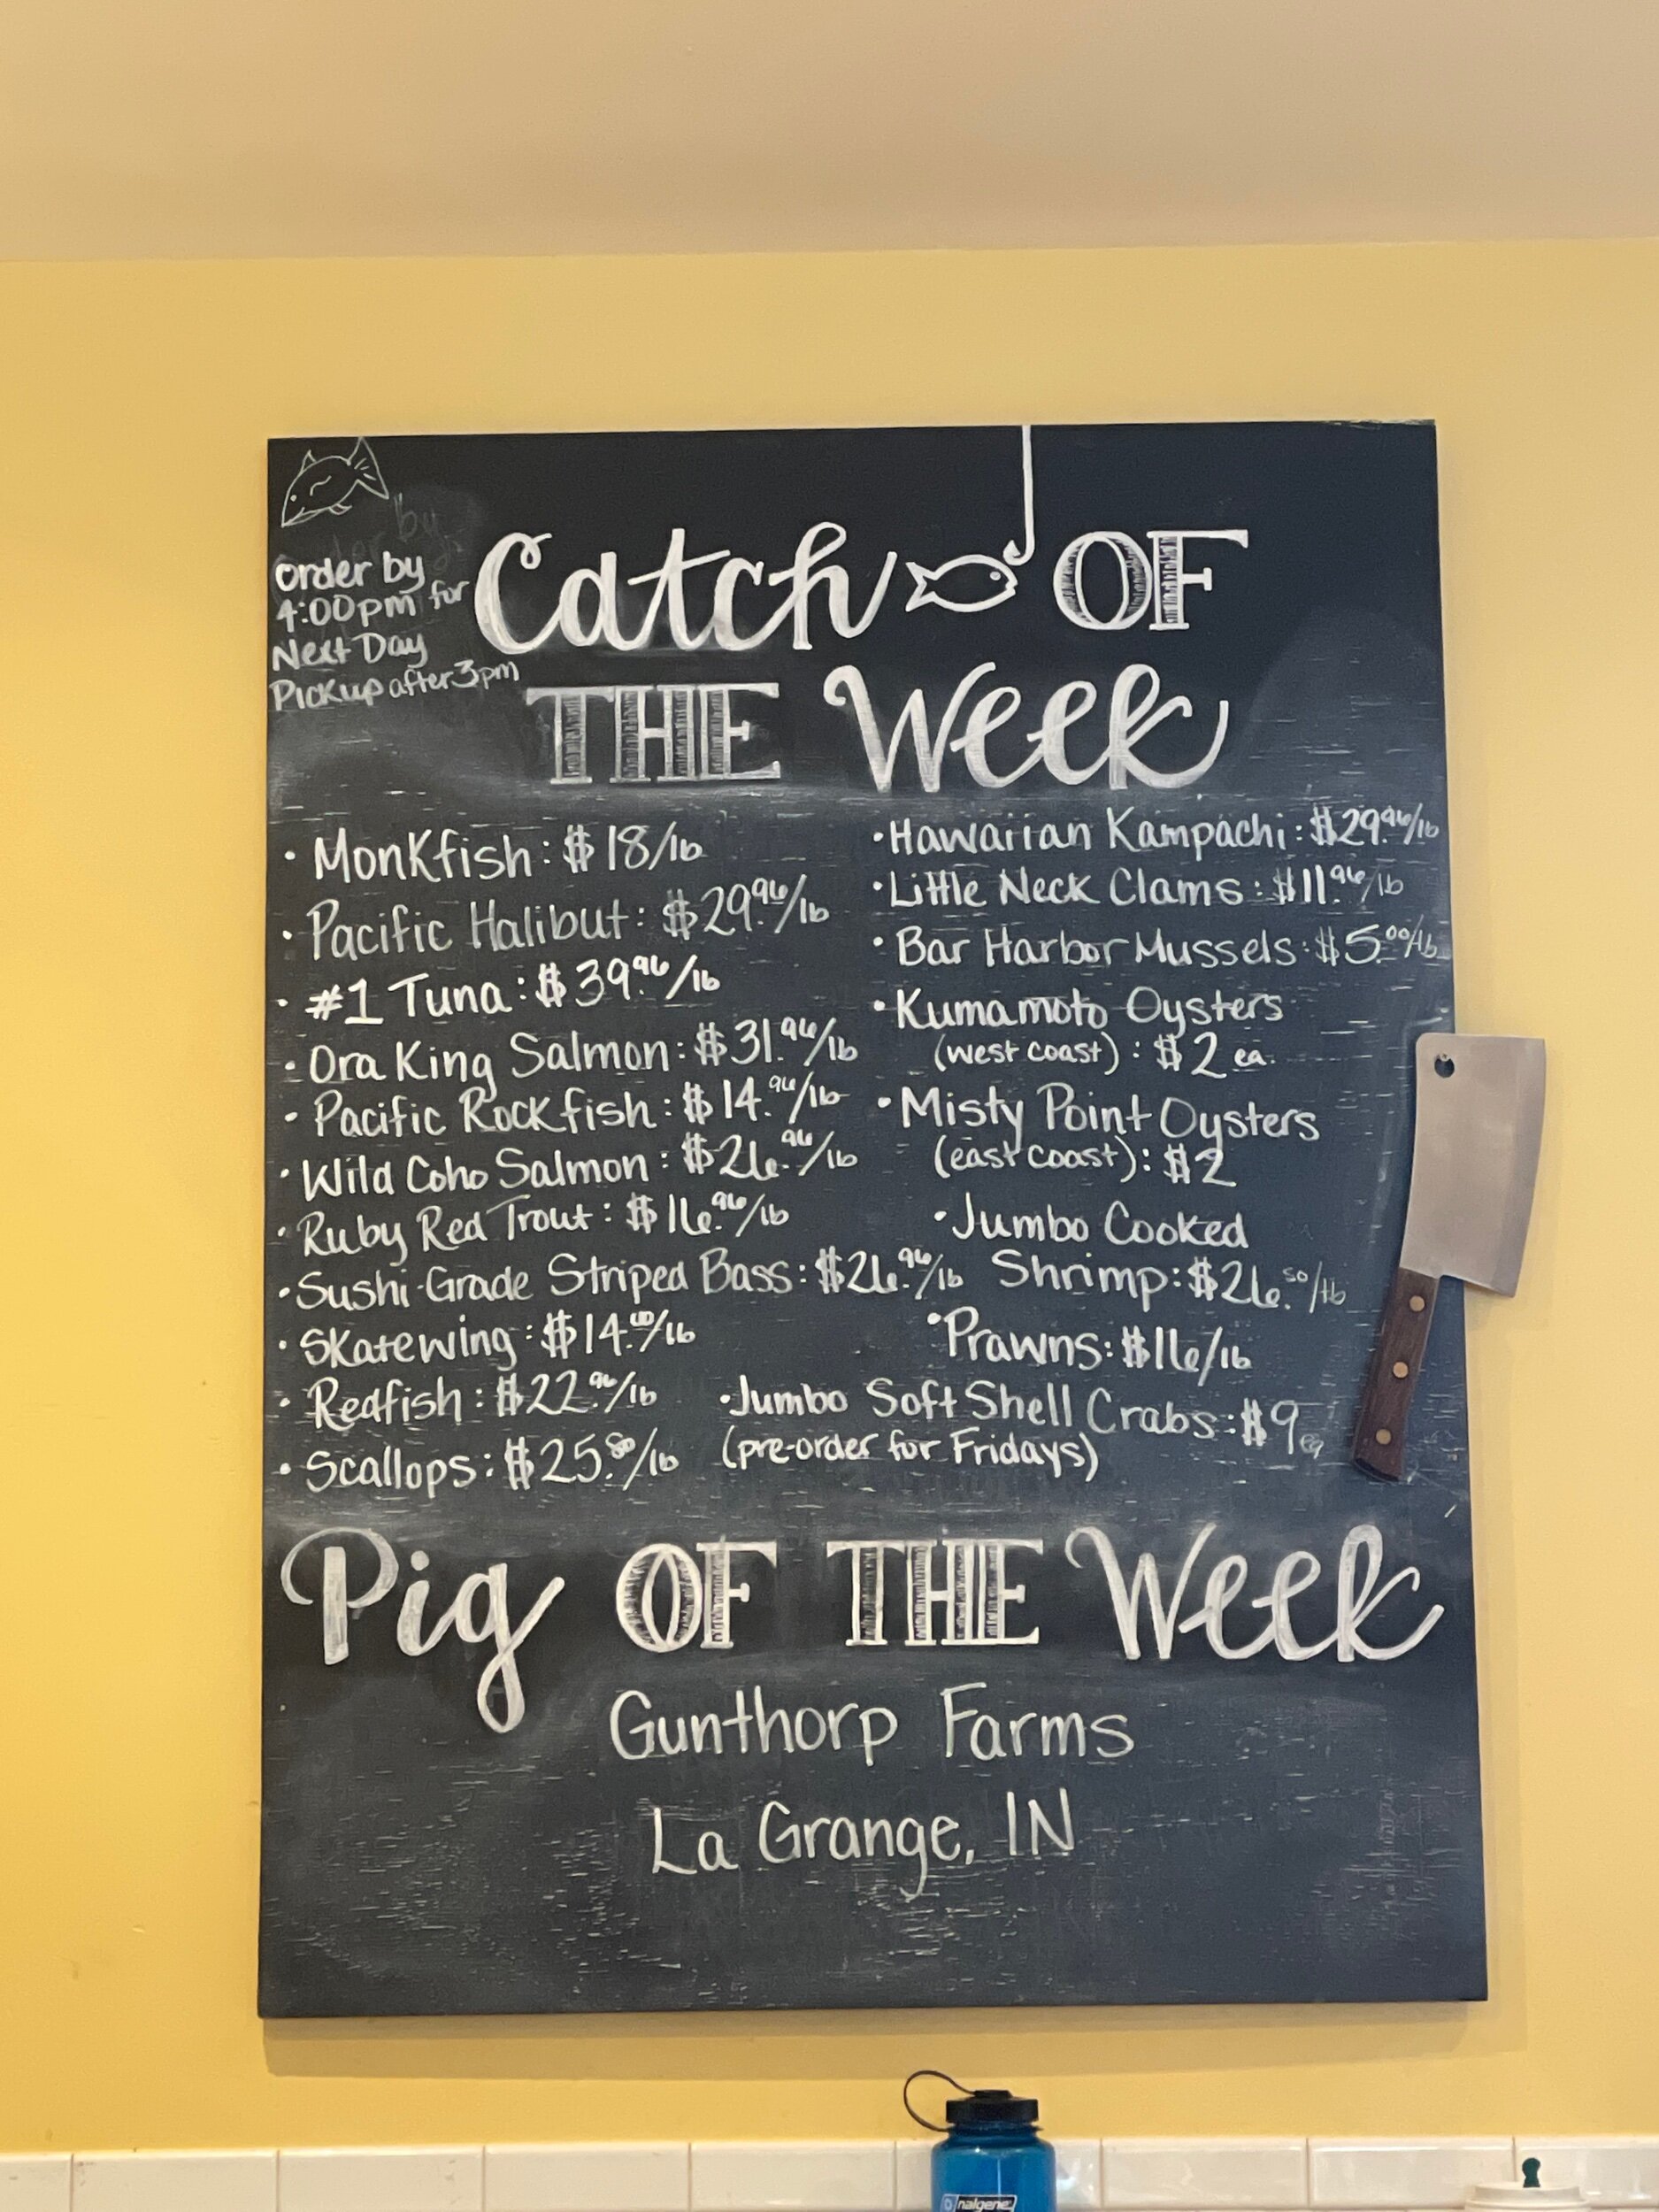 Order by
4:00pm for
Next Day
Pickup after 3pm
Catch OF
THE Week
• Monkfish: $18/lb
• Pacific Halibut: $29.96/lb
• #1 Tuna: $39.96/lb
• Ora King Salmon: $31.96/lb
• Pacific Rockfish: $14.96/lb
• Wild Coho Salmon: $26.96/lb
• Ruby Red Trout: $16.96/lb
• Sushi-Grade Striped Bass: $26.96/lb
• Skatewing: $14.00/lb
• Redfish: $22.96/lb
• Scallops: $25.80/lb
• Hawaiian Kampachi: $29.96/lb
• Little Neck Clams: $11.96/lb
• Bar Harbor Mussels: $5.00/lb
• Kumamoto Oysters
(west coast): $2 ea.
• Misty Point Oysters
(east coast): $2
• Jumbo Cooked
Shrimp: $26.50/lb
• Prawns: $16/lb
• Jumbo Soft Shell Crabs: $9 ea
(pre-order for Fridays)
Pig OF THE Week
Gunthorp Farms
La Grange, IN
nalgene